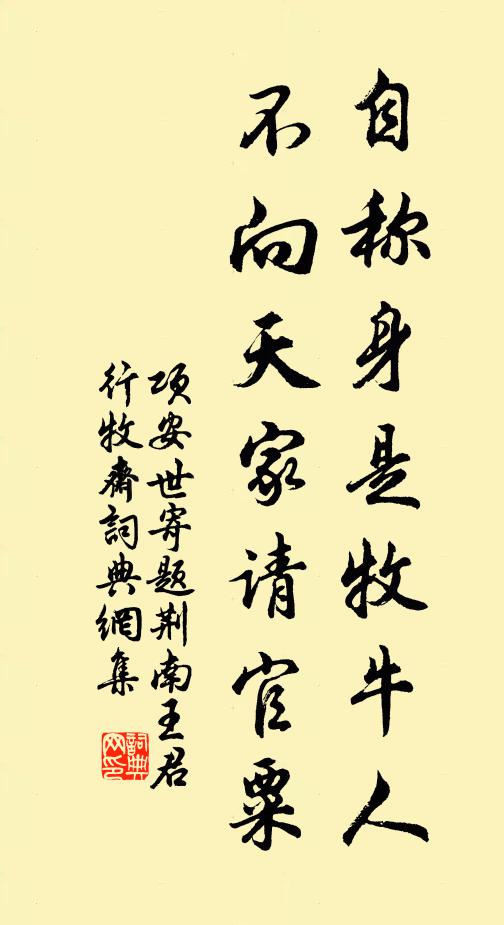 自称身是牧牛人
不向天家请官粟
项安世寄题荆南王君
行牧齋詞典網集
詞典
网印